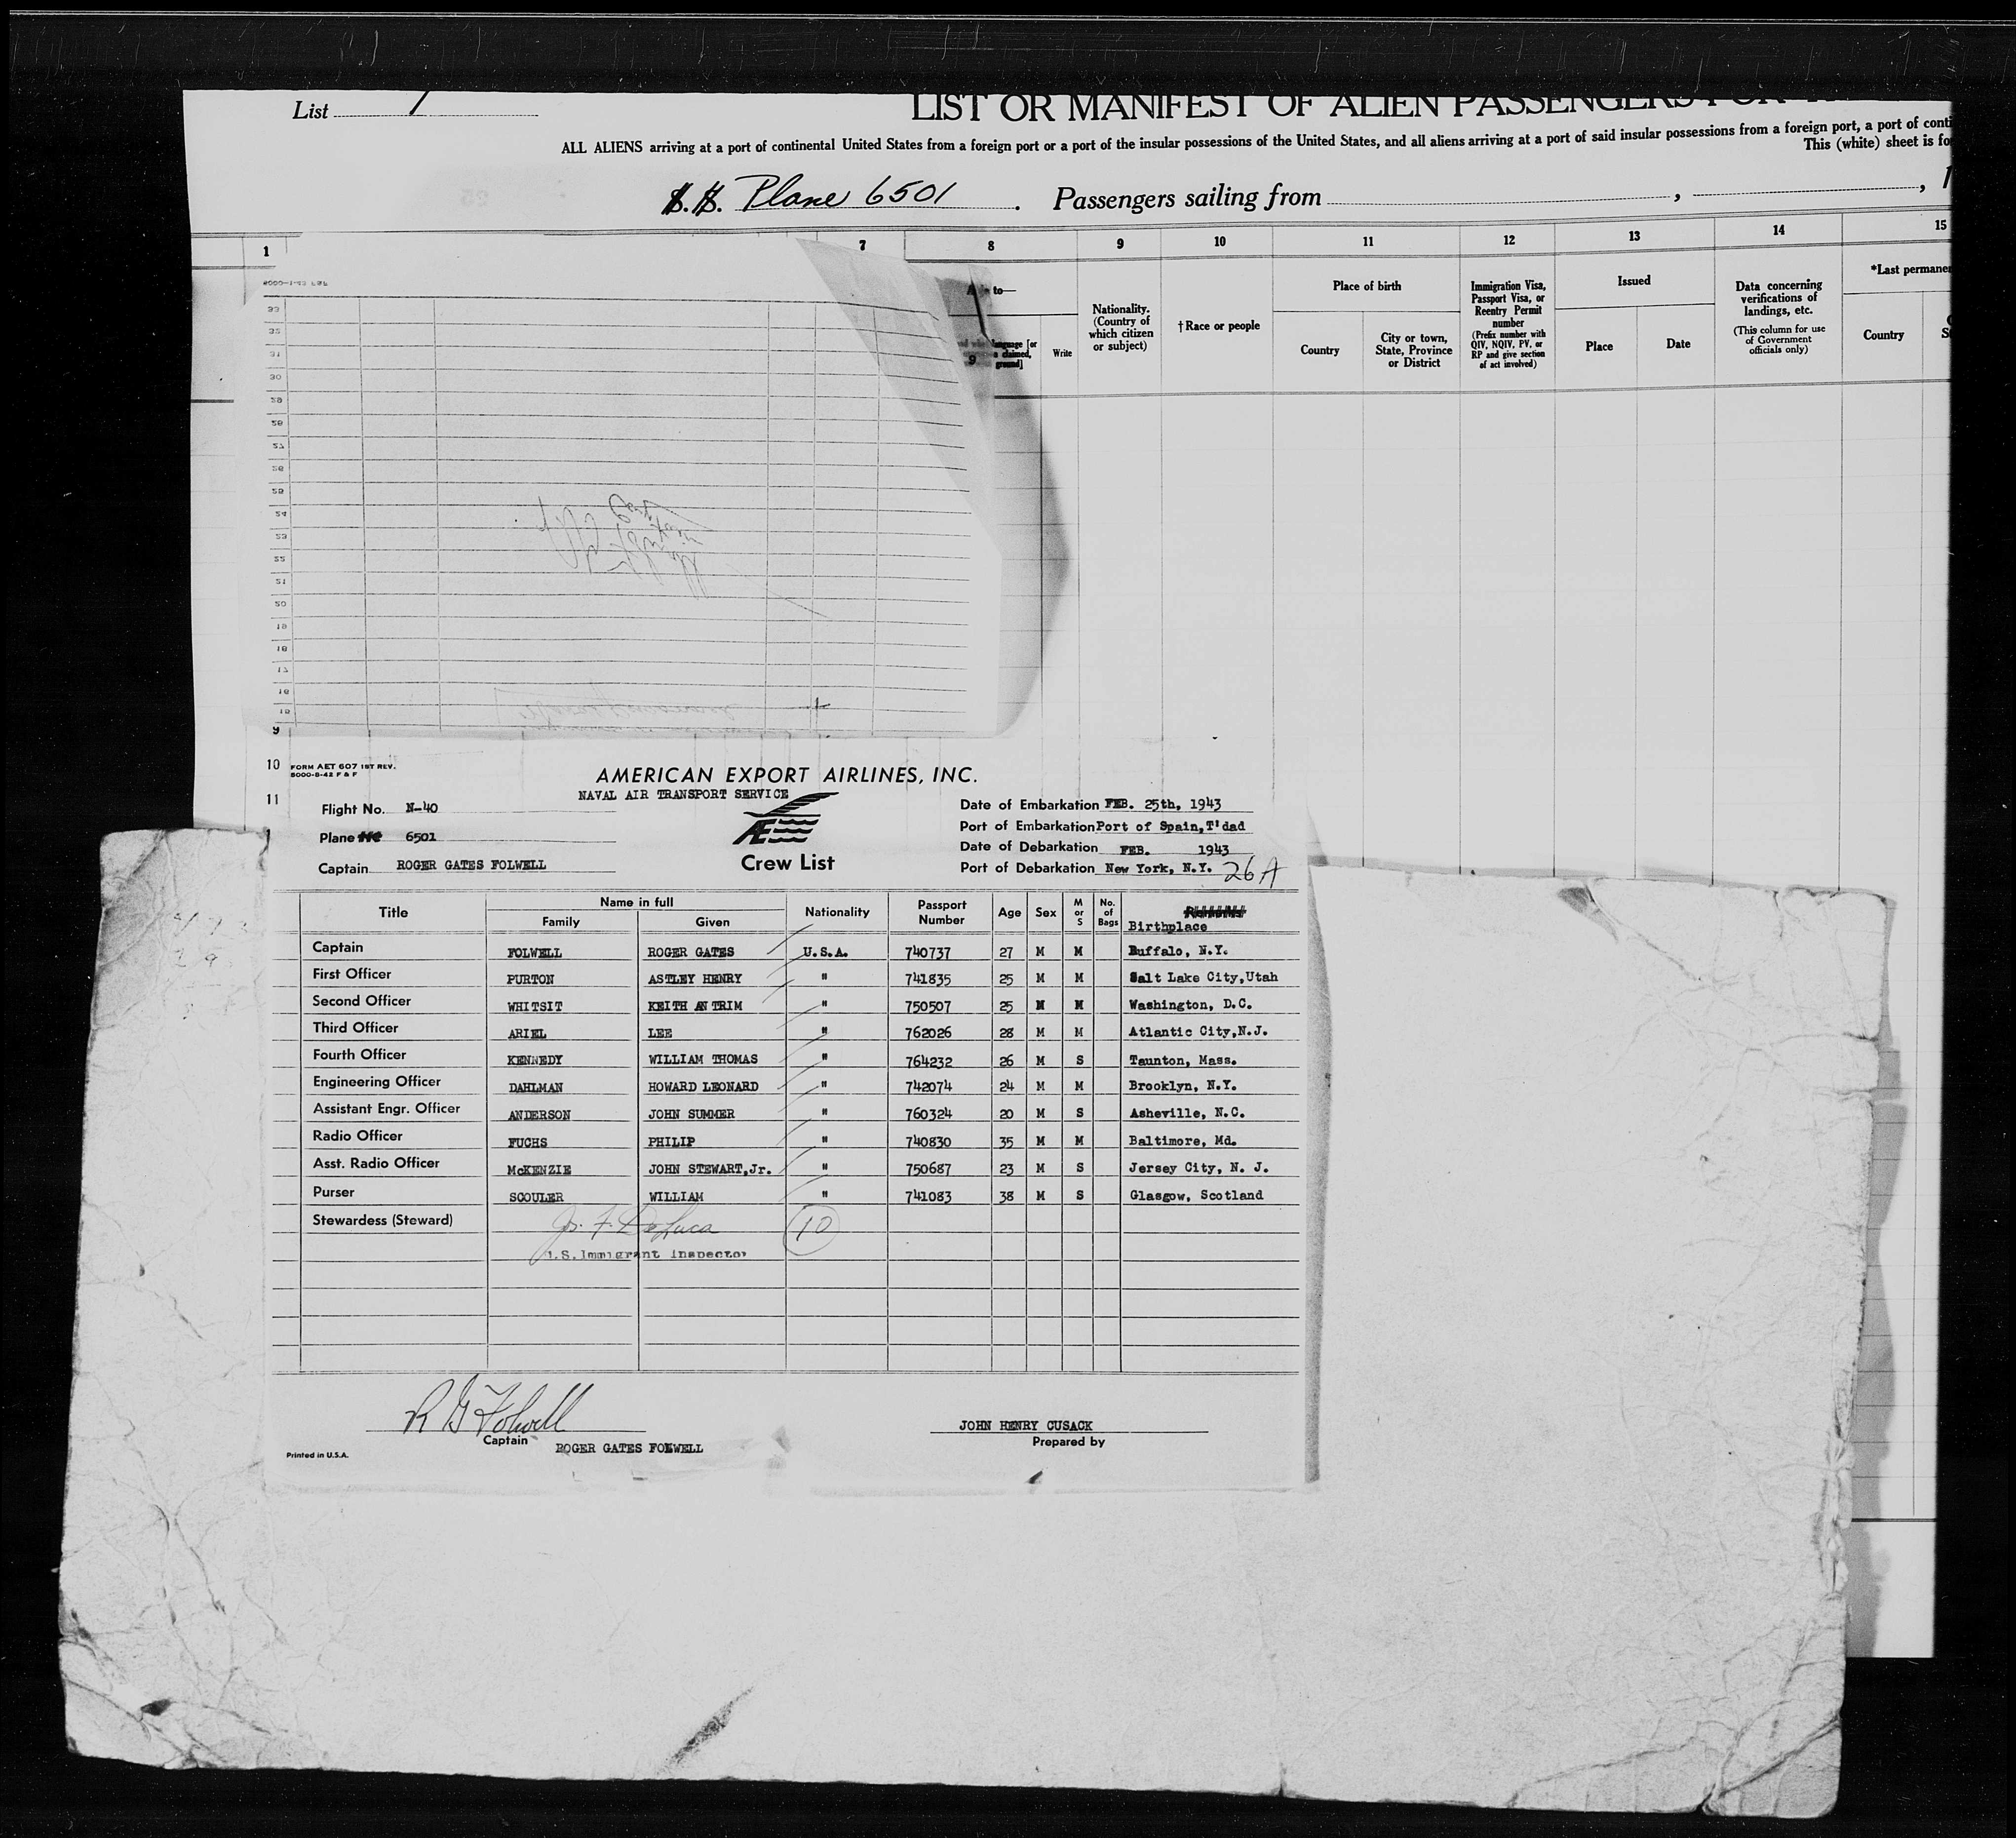 List 1
LIST OR MANIFEST OF ALIEN PASSENGERS FOR
ALL ALIENS arriving at a port of continental United States from a foreign port or a port of the insular possessions of the United States, and all aliens arriving at a port of said insular possessions from a foreign port, a port of conti
This (white) sheet is fo
S.S. Plane 6501 . Passengers sailing from , , 1
1 7 8 9 10 11 12 13 14 15
to—
language [or
claimed,
ground]
Write
Nationality.
(Country of
which citizen
or subject)
†Race or people
Place of birth
Country
City or town,
State, Province
or District
Immigration Visa,
Passport Visa, or
Reentry Permit
number
(Prefix number with
QIV, NQIV, PV, or
RP and give section
of act involved)
Issued
Place Date
Data concerning
verifications of
landings, etc.
(This column for use
of Government
officials only)
*Last permane
Country
30
29
28
27
26
25
24
23
22
21
20
19
18
17
16
15
9
10
11
FORM AET 607 1ST REV.
5000-8-42 F & F
AMERICAN EXPORT AIRLINES, INC.
NAVAL AIR TRANSPORT SERVICE
AE
Crew List
Flight No. N-40
Plane NC 6501
Captain ROGER GATES FOLWELL
Date of Embarkation FEB. 25th, 1943
Port of Embarkation Port of Spain,T'dad
Date of Debarkation FEB. 1943
Port of Debarkation New York, N.Y. 26A
Title Name in full Family Given Nationality Passport Number Age Sex M or S No. of Bags Birthplace
Captain FOLWELL ROGER GATES U.S.A. 740737 27 M M Buffalo, N.Y.
First Officer PURTON ASTLEY HENRY " 741835 25 M M Salt Lake City,Utah
Second Officer WHITSIT KEITH ANTRIM " 750507 25 M M Washington, D.C.
Third Officer ARIEL LEE " 762026 28 M M Atlantic City,N.J.
Fourth Officer KENNEDY WILLIAM THOMAS " 764232 26 M S Taunton, Mass.
Engineering Officer DAHLMAN HOWARD LEONARD " 742074 24 M M Brooklyn, N.Y.
Assistant Engr. Officer ANDERSON JOHN SUMMER " 760324 20 M S Asheville, N.C.
Radio Officer FUCHS PHILIP " 740830 35 M M Baltimore, Md.
Asst. Radio Officer McKENZIE JOHN STEWART,Jr. " 750687 23 M S Jersey City, N. J.
Purser SCOULER WILLIAM " 741083 38 M S Glasgow, Scotland
Stewardess (Steward) Jos. F. DeLuca 10
U.S. Immigrant Inspector
R G Folwell
Captain ROGER GATES FOLWELL
JOHN HENRY CUSACK
Prepared by
Printed in U.S.A.